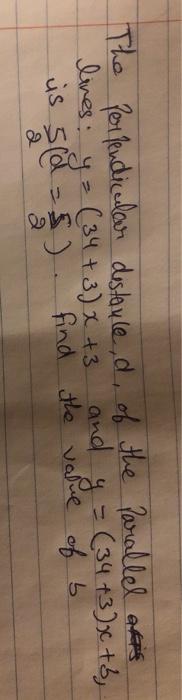 The Perpendicular distance, d, of the Parallel
lines: y = (34+3)x + 3 and y = (34+3)x + b,
is 5/2 (d = 5/2). find the value of b